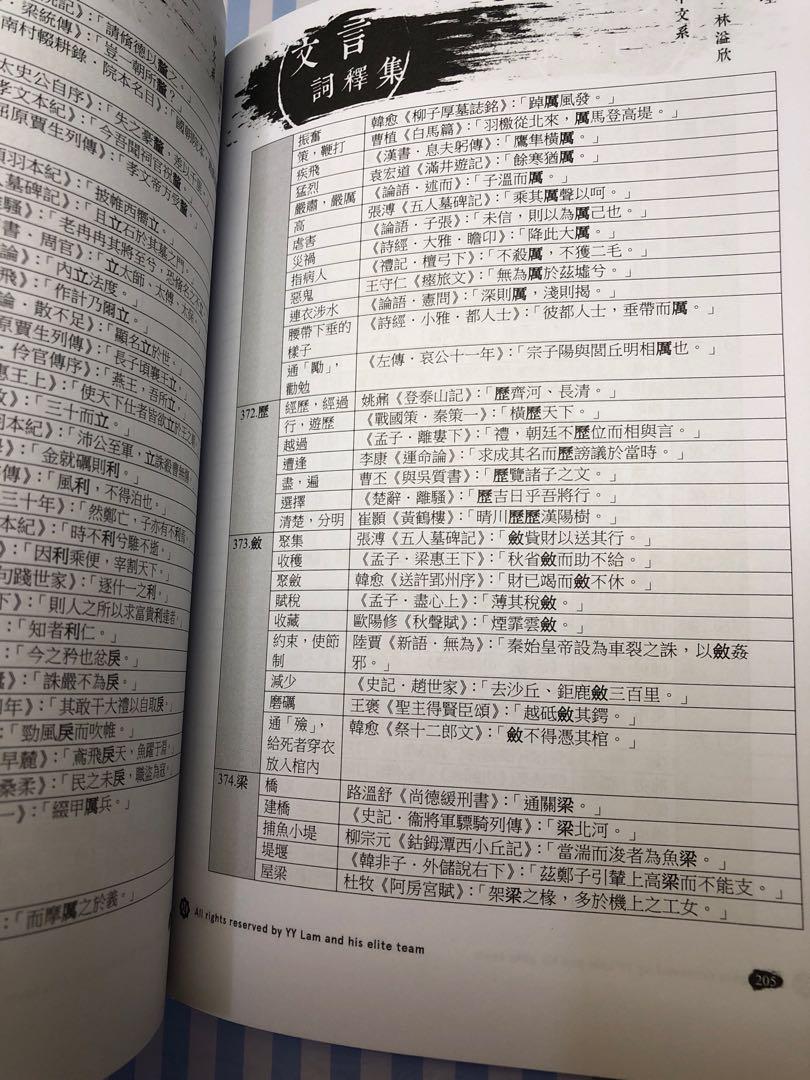 南村輟耕錄．院本名目》：「國朝
太史公自序》：「失之豪釐，差以千里。
孝文本紀》：「今吾聞祠官祝釐，
屈原賈生列傳》：「孝文帝方受釐，
項羽本紀》：「披帷西嚮立。
人墓碑記》：「且立石於其墓之門，
離騷》：「老冉冉其將至兮，恐脩名之不
書．周官》：「立太師、太傅、太保，
論》：「內立法度。」
飛》：「作計乃爾立。」
論．散不足》：「顯名立於世。」
原賈生列傳》：「長子頃襄王立，
．伶官傳序》：「燕王，吾所立，
惠王上》：「使天下仕者皆欲立於王之朝
》：「三十而立。」
羽本紀》：「沛公至軍，立誅殺曹無傷。
》：「金就礪則利。」
傳》：「風利，不得泊也。」
三十年》：「然鄭亡，子亦有不利焉。
本紀》：「時不利兮騅不逝。」
》：「因利乘便，宰割天下。」
句踐世家》：「逐什一之利。」
下》：「則人之所以求富貴利達者，
：「知者利仁。」
：「今之矜也忿戾。」
》：「誅嚴不為戾。」
年》：「其敢干大禮以自取戾。」
：「勁風戾而吹帷。」
早麓》：「鳶飛戾天，魚躍于淵。」
桑柔》：「民之未戾，職盜為寇。」
一》：「綴甲厲兵。」
：「而摩厲之於義。」
文言
詞釋集
林溢欣
中文系
振奮 韓愈《柳子厚墓誌銘》：「踔厲風發。」
策，鞭打 曹植《白馬篇》：「羽檄從北來，厲馬登高堤。」
疾飛 《漢書．息夫躬傳》：「鷹隼橫厲。」
猛烈 袁宏道《滿井遊記》：「餘寒猶厲。」
嚴肅，嚴厲 《論語．述而》：「子溫而厲。」
高 張溥《五人墓碑記》：「乘其厲聲以呵。」
虐害 《論語．子張》：「未信，則以為厲己也。」
災禍 《詩經．大雅．瞻卬》：「降此大厲。」
指病人 《禮記．檀弓下》：「不殺厲，不獲二毛。」
惡鬼 王守仁《瘞旅文》：「無為厲於茲墟兮。」
連衣涉水 《論語．憲問》：「深則厲，淺則揭。」
腰帶下垂的 《詩經．小雅．都人士》：「彼都人士，垂帶而厲。」
樣子
通「勵」， 《左傳．哀公十一年》：「宗子陽與閭丘明相厲也。」
勸勉
372.歷 經歷，經過 姚鼐《登泰山記》：「歷齊河、長清。」
行，遊歷 《戰國策．秦策一》：「橫歷天下。」
越過 《孟子．離婁下》：「禮，朝廷不歷位而相與言。」
遭逢 李康《運命論》：「求成其名而歷謗議於當時。」
盡，遍 曹丕《與吳質書》：「歷覽諸子之文。」
選擇 《楚辭．離騷》：「歷吉日乎吾將行。」
清楚，分明 崔顥《黃鶴樓》：「晴川歷歷漢陽樹。」
373.斂 聚集 張溥《五人墓碑記》：「斂貲財以送其行。」
收穫 《孟子．梁惠王下》：「秋省斂而助不給。」
聚斂 韓愈《送許郢州序》：「財已竭而斂不休。」
賦稅 《孟子．盡心上》：「薄其稅斂。」
收藏 歐陽修《秋聲賦》：「煙霏雲斂。」
約束，使節 陸賈《新語．無為》：「秦始皇帝設為車裂之誅，以斂姦
制 邪。」
減少 《史記．趙世家》：「去沙丘、鉅鹿斂三百里。」
磨礪 王褒《聖主得賢臣頌》：「越砥斂其鍔。」
通「殮」， 韓愈《祭十二郎文》：「斂不得憑其棺。」
給死者穿衣
放入棺內
374.梁 橋 路溫舒《尚德緩刑書》：「通關梁。」
建橋 《史記．衞將軍驃騎列傳》：「梁北河。」
捕魚小堤 柳宗元《鈷鉧潭西小丘記》：「當湍而浚者為魚梁。」
堤堰 《韓非子．外儲說右下》：「茲鄭子引輦上高梁而不能支。」
屋梁 杜牧《阿房宮賦》：「架梁之椽，多於機上之工女。」
All rights reserved by YY Lam and his elite team
205